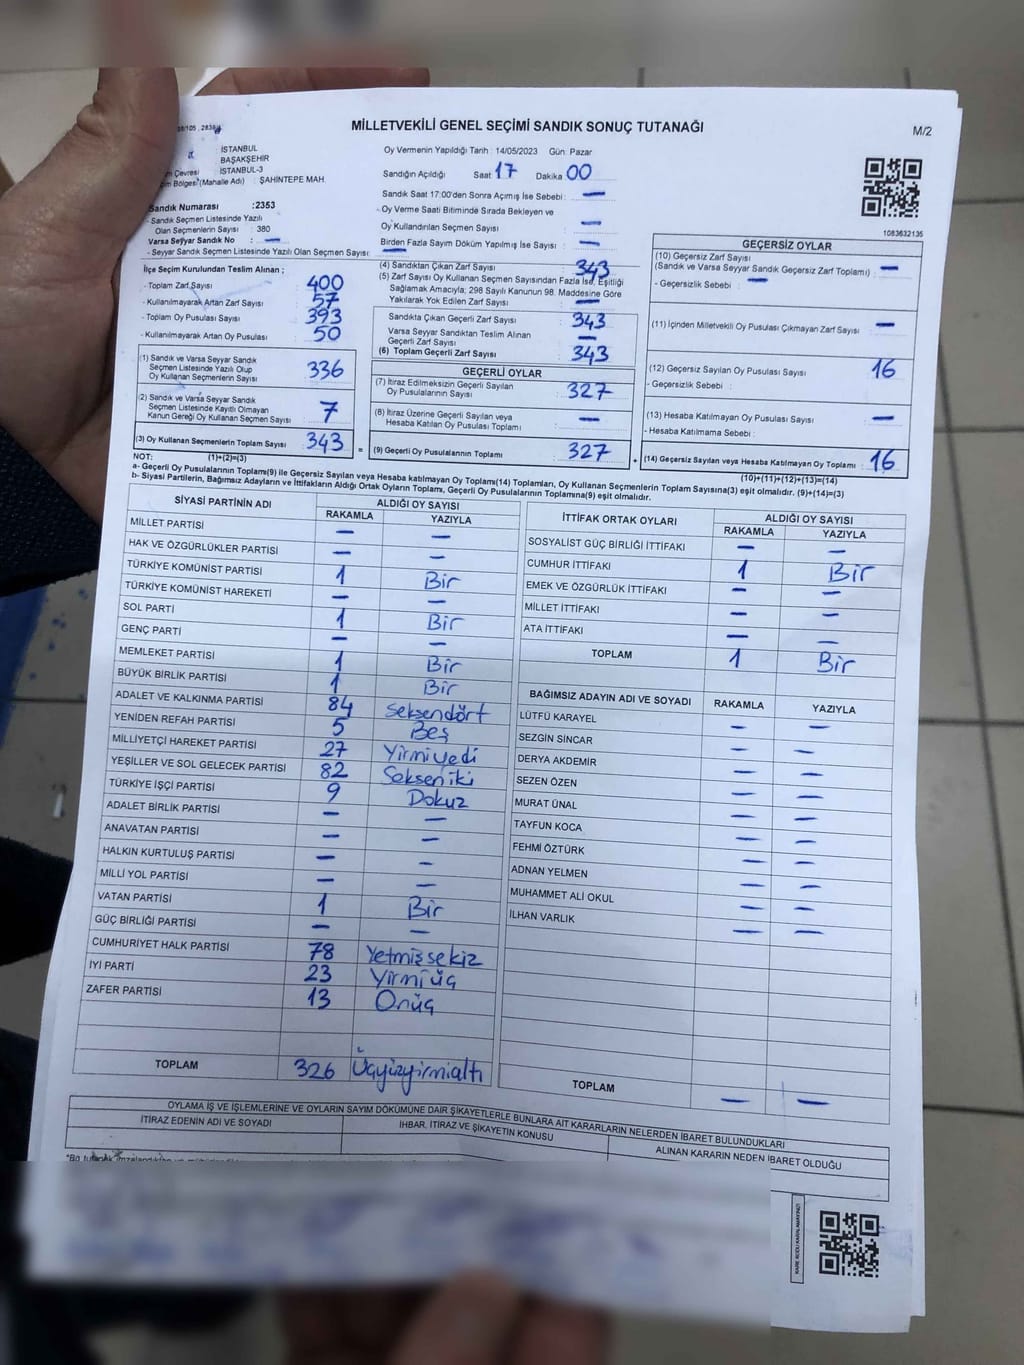 MİLLETVEKİLİ GENEL SEÇİMİ SANDIK SONUÇ TUTANAĞI
M/2
İSTANBUL
BAŞAKŞEHİR
Çevresi İSTANBUL-3
Bölgesi (Mahalle Adı) : ŞAHİNTEPE MAH.
Sandık Numarası :2353
- Sandık Seçmen Listesinde Yazılı
Olan Seçmenlerin Sayısı : 380
Varsa Seyyar Sandık No : —
- Seyyar Sandık Seçmen Listesinde Yazılı Olan Seçmen Sayısı: —
İlçe Seçim Kurulundan Teslim Alınan ;
- Toplam Zarf Sayısı 400
- Kullanılmayarak Artan Zarf Sayısı 57
- Toplam Oy Pusulası Sayısı 393
- Kullanılmayarak Artan Oy Pusulası 50
(1) Sandık ve Varsa Seyyar Sandık
Seçmen Listesinde Yazılı Olup
Oy Kullanan Seçmenlerin Sayısı 336
(2) Sandık ve Varsa Seyyar Sandık
Seçmen Listesinde Kayıtlı Olmayan
Kanun Gereği Oy Kullanan Seçmen Sayısı 7
(3) Oy Kullanan Seçmenlerin Toplam Sayısı 343 =
Oy Vermenin Yapıldığı Tarih : 14/05/2023 Gün: Pazar
Sandığın Açıldığı Saat 17 Dakika 00
Sandık Saat 17:00'den Sonra Açılmış İse Sebebi : —
- Oy Verme Saati Bitiminde Sırada Bekleyen ve
Oy Kullandırılan Seçmen Sayısı : —
Birden Fazla Sayım Döküm Yapılmış İse Sayısı : —
(4) Sandıktan Çıkan Zarf Sayısı 343
(5) Zarf Sayısı Oy Kullanan Seçmen Sayısından Fazla İse, Eşitliği
Sağlamak Amacıyla; 298 Sayılı Kanunun 98. Maddesine Göre
Yakılarak Yok Edilen Zarf Sayısı : —
Sandıkta Çıkan Geçerli Zarf Sayısı 343
Varsa Seyyar Sandıktan Teslim Alınan
Geçerli Zarf Sayısı —
(6) Toplam Geçerli Zarf Sayısı 343
GEÇERLİ OYLAR
(7) İtiraz Edilmeksizin Geçerli Sayılan
Oy Pusulalarının Sayısı : 327
(8) İtiraz Üzerine Geçerli Sayılan veya
Hesaba Katılan Oy Pusulası Toplamı : —
(9) Geçerli Oy Pusulalarının Toplamı : 327 +
1083632135
GEÇERSİZ OYLAR
(10) Geçersiz Zarf Sayısı
(Sandık ve Varsa Seyyar Sandık Geçersiz Zarf Toplamı) : —
- Geçersizlik Sebebi : —
(11) İçinden Milletvekili Oy Pusulası Çıkmayan Zarf Sayısı : —
(12) Geçersiz Sayılan Oy Pusulası Sayısı : 16
- Geçersizlik Sebebi :
(13) Hesaba Katılmayan Oy Pusulası Sayısı : —
- Hesaba Katılmama Sebebi :
(14) Geçersiz Sayılan veya Hesaba Katılmayan Oy Toplamı : 16
NOT: (1)+(2)=(3)
(10)+(11)+(12)+(13)=(14)
a- Geçerli Oy Pusulalarının Toplamı(9) ile Geçersiz Sayılan veya Hesaba katılmayan Oy Toplamı(14) Toplamları, Oy Kullanan Seçmenlerin Toplam Sayısına(3) eşit olmalıdır. (9)+(14)=(3)
b- Siyasi Partilerin, Bağımsız Adayların ve İttifakların Aldığı Ortak Oyların Toplamı, Geçerli Oy Pusulalarının Toplamına(9) eşit olmalıdır.
SİYASİ PARTİNİN ADI ALDIĞI OY SAYISI
RAKAMLA YAZIYLA
MİLLET PARTİSİ — —
HAK VE ÖZGÜRLÜKLER PARTİSİ — —
TÜRKİYE KOMÜNİST PARTİSİ 1 Bir
TÜRKİYE KOMÜNİST HAREKETİ — —
SOL PARTİ 1 Bir
GENÇ PARTİ — —
MEMLEKET PARTİSİ 1 Bir
BÜYÜK BİRLİK PARTİSİ 1 Bir
ADALET VE KALKINMA PARTİSİ 84 Seksendört
YENİDEN REFAH PARTİSİ 5 Beş
MİLLİYETÇİ HAREKET PARTİSİ 27 Yirmiyedi
YEŞİLLER VE SOL GELECEK PARTİSİ 82 Sekseniki
TÜRKİYE İŞÇİ PARTİSİ 9 Dokuz
ADALET BİRLİK PARTİSİ — —
ANAVATAN PARTİSİ — —
HALKIN KURTULUŞ PARTİSİ — —
MİLLİ YOL PARTİSİ — —
VATAN PARTİSİ 1 Bir
GÜÇ BİRLİĞİ PARTİSİ — —
CUMHURİYET HALK PARTİSİ 78 Yetmişsekiz
İYİ PARTİ 23 Yirmiüç
ZAFER PARTİSİ 13 Onüç
TOPLAM 326 Üçyüzyirmialtı
İTTİFAK ORTAK OYLARI ALDIĞI OY SAYISI
RAKAMLA YAZIYLA
SOSYALİST GÜÇ BİRLİĞİ İTTİFAKI — —
CUMHUR İTTİFAKI 1 Bir
EMEK VE ÖZGÜRLÜK İTTİFAKI — —
MİLLET İTTİFAKI — —
ATA İTTİFAKI — —
TOPLAM 1 Bir
BAĞIMSIZ ADAYIN ADI VE SOYADI RAKAMLA YAZIYLA
LÜTFÜ KARAYEL — —
SEZGİN SİNCAR — —
DERYA AKDEMİR — —
SEZEN ÖZEN — —
MURAT ÜNAL — —
TAYFUN KOCA — —
FEHMİ ÖZTÜRK — —
ADNAN YELMEN — —
MUHAMMET ALİ OKUL — —
İLHAN VARLIK — —
TOPLAM — —
OYLAMA İŞ VE İŞLEMLERİNE VE OYLARIN SAYIM DÖKÜMÜNE DAİR ŞİKAYETLERLE BUNLARA AİT KARARLARIN NELERDEN İBARET BULUNDUKLARI
İTİRAZ EDENİN ADI VE SOYADI İHBAR, İTİRAZ VE ŞİKAYETİN KONUSU ALINAN KARARIN NEDEN İBARET OLDUĞU